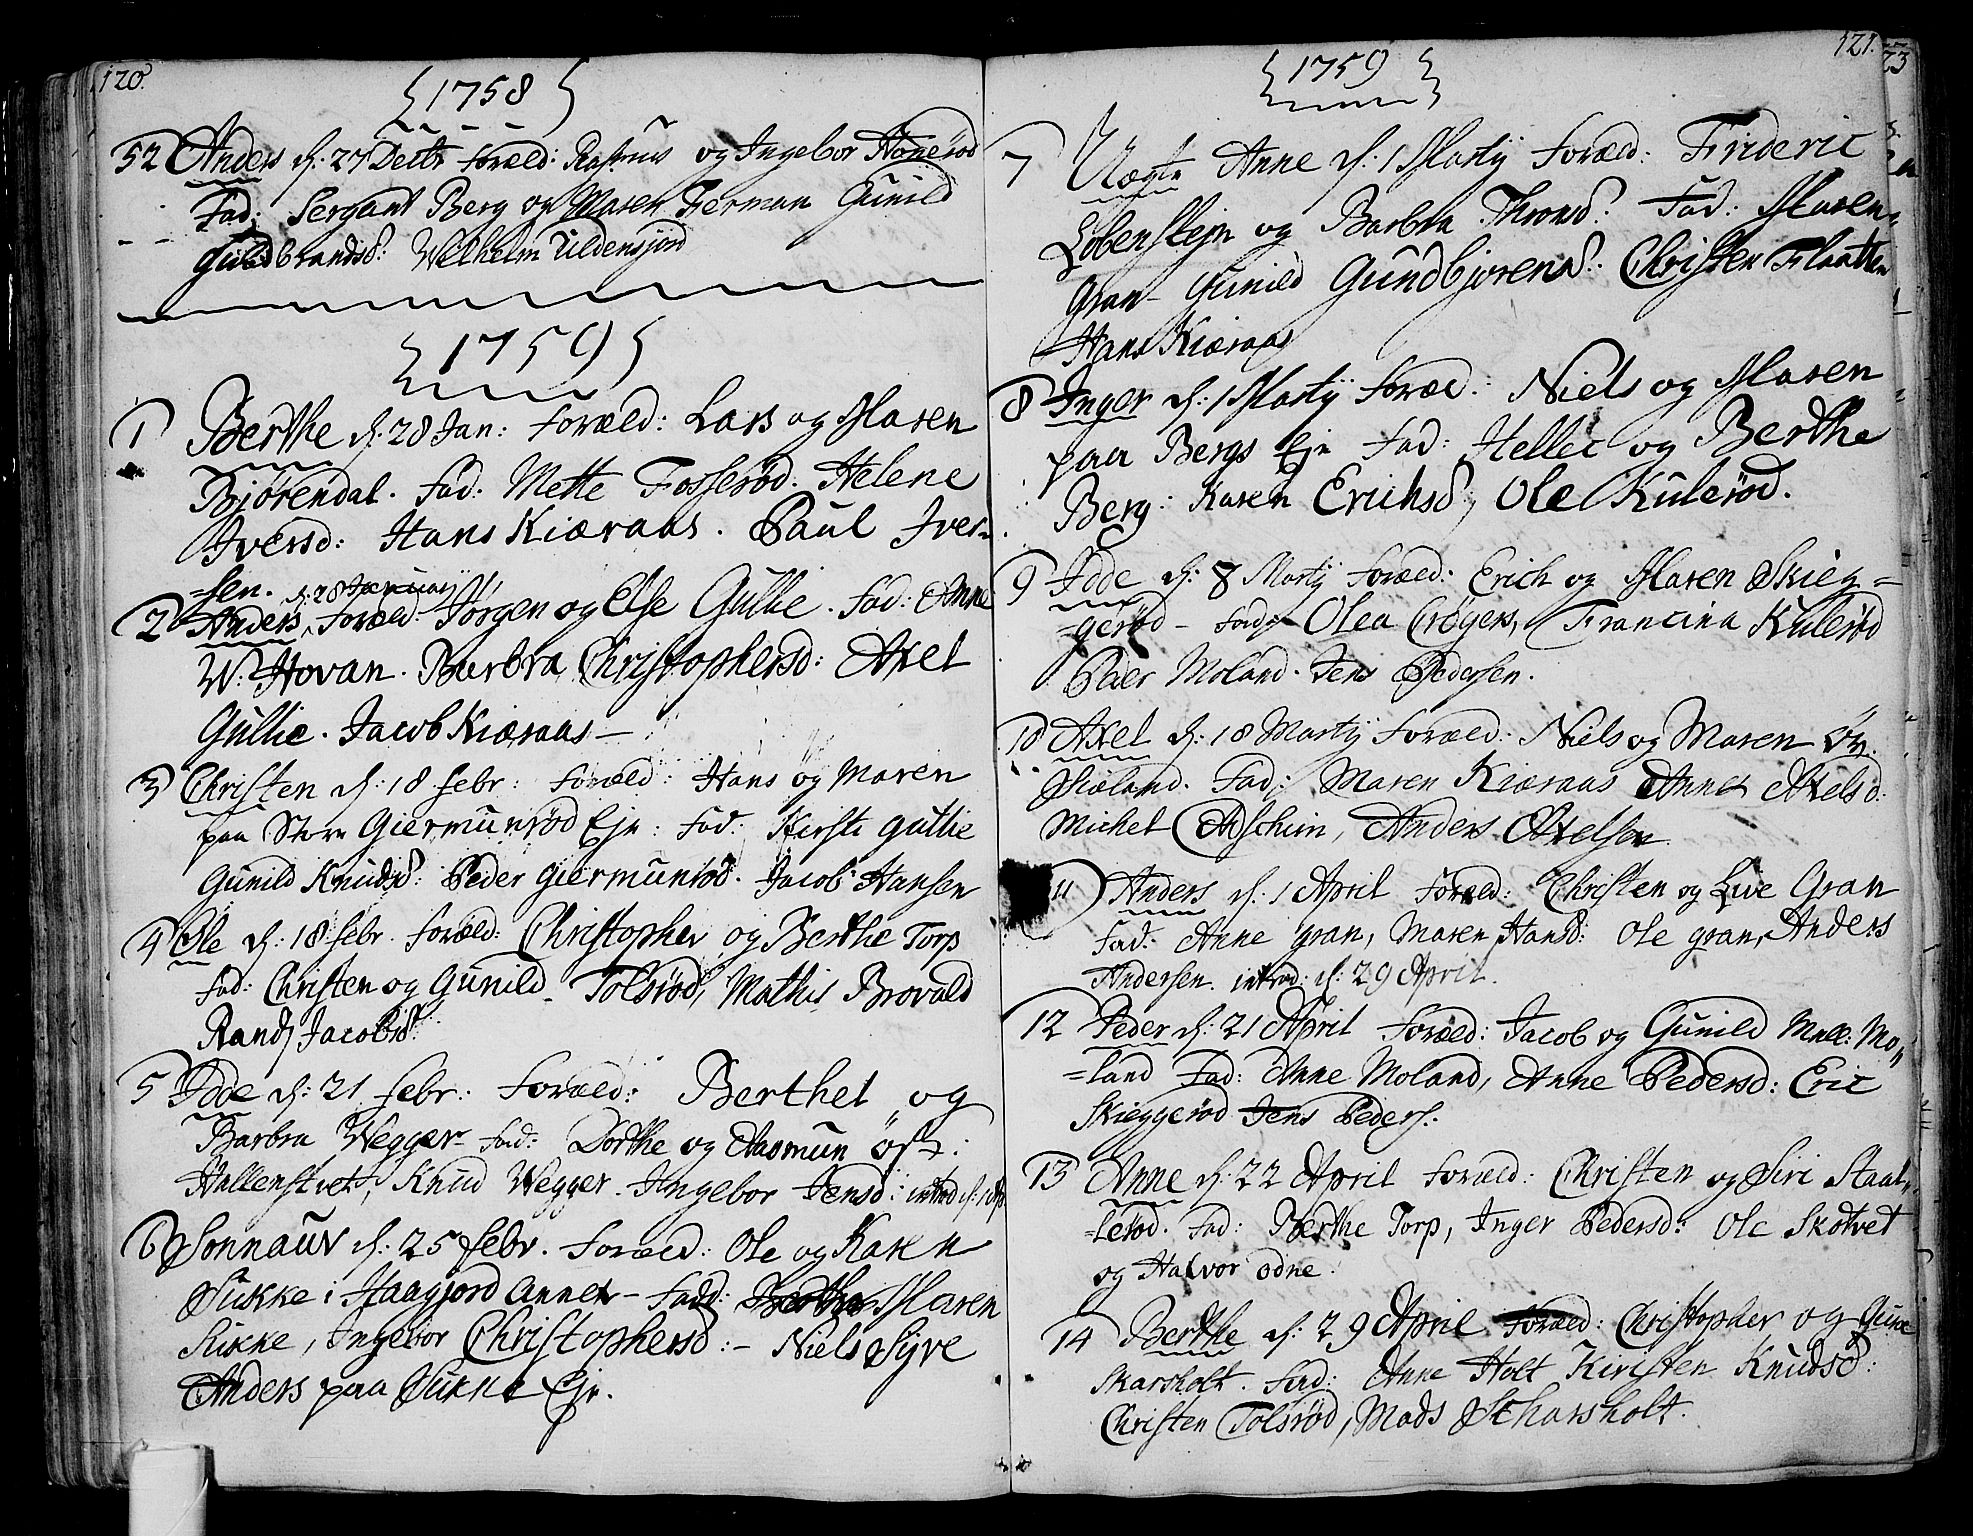 120.
1758
52 Anders d: 27 Decbr Foræld: Rasmus og Ingebor Honerød
Fad: Sergant Berg og Maren Ferman Gunild
Guldbrandsd: Wilhelm Uldensjord
1759
1 Berthe d: 28 Jan: Foræld: Lars og Maren
Bjørendal. Fad: Mette Fosserød. Helene
Iversd: Hans Kiæraas. Paul Iver-
=sen.
d: 28 Januarij
2 Anders, Foræld: Jørgen og Else Gullie. Fad: Anne
W: Hovan. Barbra Christophersd: Axel
Gullie. Jacob Kiæraas —
3 Christen d: 18 febr: Foræld: Hans og Maren
paa Store Giermunrød Eje: Fad: Kirsti Gullie
Gunild Knudsd: Peder Giermunrød. Jacob Hansen
4 Ole d: 18 febr. Foræld: Christopher og Berthe Torp
Fad: Christen og Gunild Tolsrød, Mathis Brovald
Randj Jacobsd:
5 Idde d: 21 febr: Foræld: Berthel og
Barbra Wegger Fad: Dorthe og Aasmun øst:
Hallenstvet, Knud Wegger. Ingebor Jensd: introd d: 1 Ap
6 Sonnauv d: 25 febr. Foræld: Ole og Karen
Sukke i Haagjord Annex - Fadd: Maren
Sukke, Ingebor Christophersd: - Niels Syve
Anders paa Sukke Eje.
121.
1759
7 Uægte Anne d: 1 Martij Foræld: Frideric
Lobenstejn og Barbra Thronsd: Fad: Maren
Gran - Gunild Gundbjørensd: Christen Flaatten
Hans Kiæraas
8 Inger d: 1 Martij Foræl: Niels og Maren
paa Bergs Eje Fad: Hellec og Berthe
Berg: Karen Erichsd, Ole Kulerød.
9 Idde d: 8 Martij Foræld: Erich og Maren Skieg=
=gerød - Fad: Olea Crøgers, Francina Kulerød
Peder Moland. Jens Pedersen.
10 Axel d: 18 Martij Foræld: Niels og Maren øv.
Siæland. Fad: Maren Kiæraas Anne Axelsd:
Michel Aschim, Anders Axelsen
11 Anders d: 1 April Foræld: Christen og Live Gran
Fad: Anne Gran, Maren Hansd: Ole Gran, Anders
Andersen. introd: d: 29 April.
12 Peder d: 21 April Foræld: Jacob og Gunild Mell: Mo=
=land Fad: Anne Moland, Anne Pedersd: Eric
Skieggerød Jens Peders:
13 Anne d: 22 April Foræld: Christen og Siri Staal=
=lerød. Fad: Berthe Torp, Inger Pedersd: Ole Skotvet
og Halvor Odne.
14 Berthe d: 29 April Foræld: Christopher og Gune
Skarsholt. Fad: Anne Holt Kirsten Knudsd:
Christen Tolsrød, Mads Scharsholt.